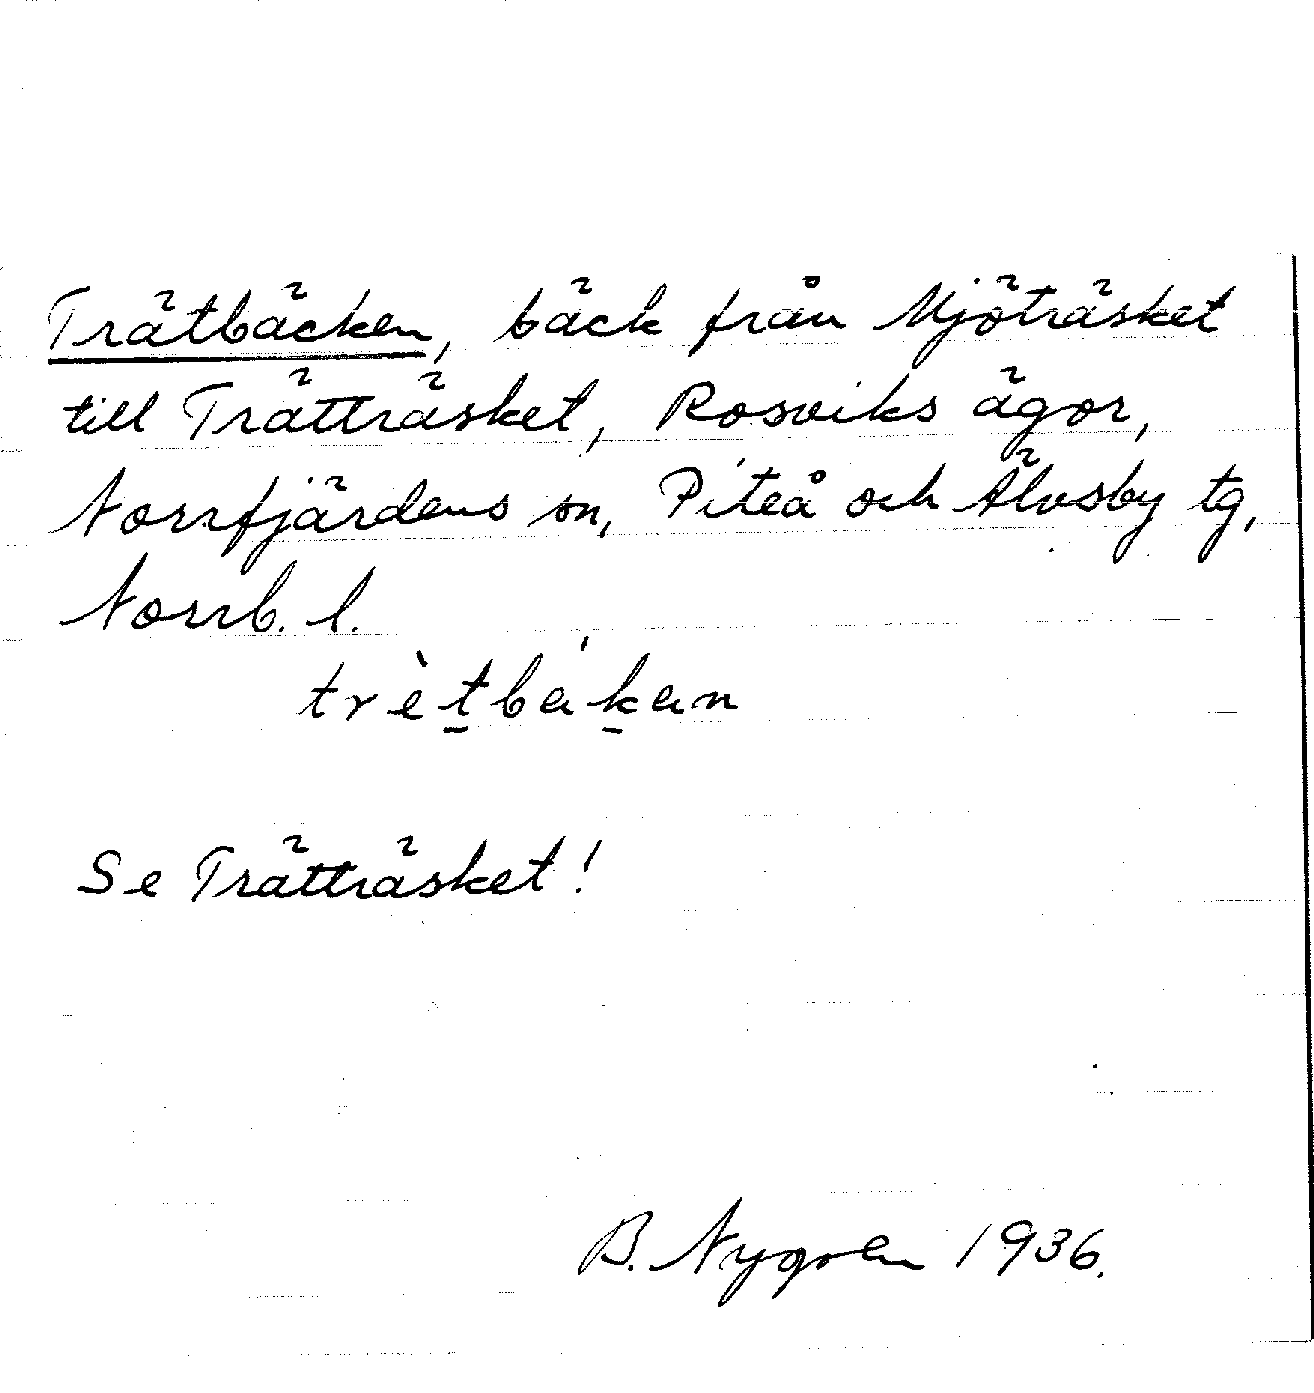 Trätbäcken, bäck från Mjöträsket
till Trätträsket, Rosviks ägor,
Norrfjärdens sn, Piteå och Älvsby tg,
Norrb. l.
trètbákan
Se Trätträsket!
B. Nygren 1936.